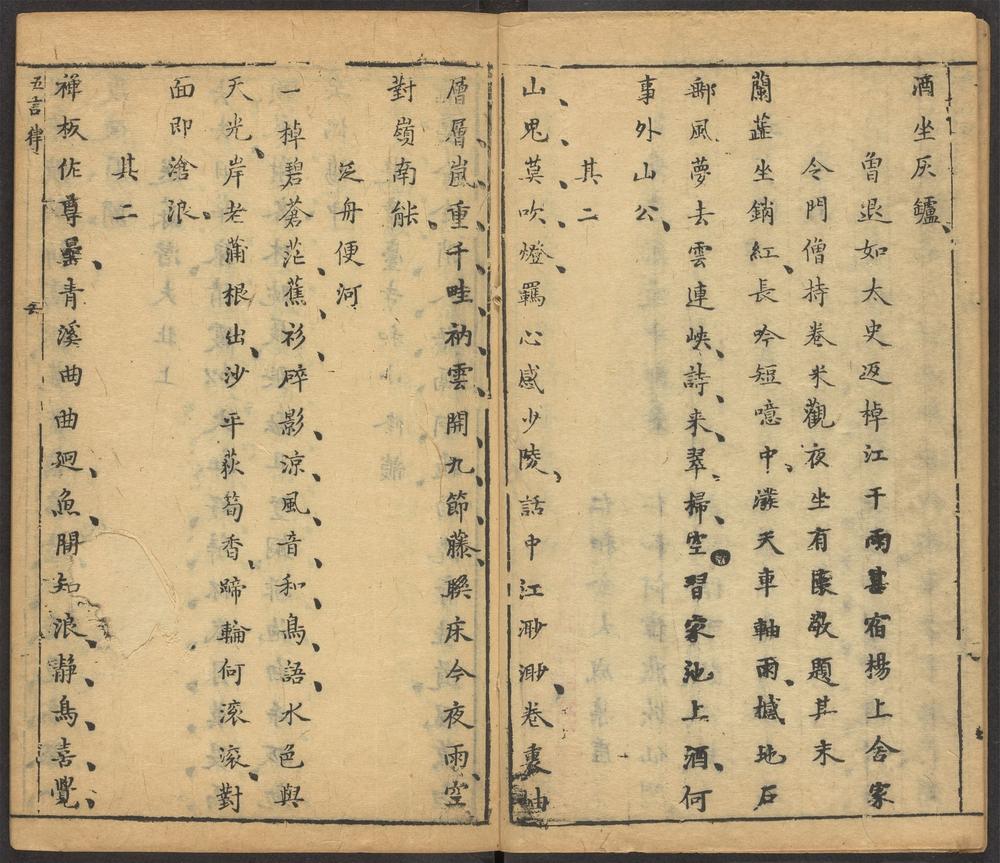 酒坐灰鑪
魯退如太史返棹江干雨甚宿楊上舍家
令門僧持卷米觀夜坐有懷敬題其末
蘭葢坐銷紅長吟短噫中漾天車軸雨撼地石
郵風夢去雲連峽詩来翠掃空習家池上酒何
事外山公
其二
山鬼莫吹燈羈心感少陵話中江渺渺卷裏岫
層層嵐重千畦衲雲開九節藤聯床今夜雨空
對嶺南能
泛舟便河
一棹碧蒼茫蕉衫碎影涼風音和鳥語水色與
天光岸老蒲根出沙平荻筍香蹄輪何滚滚對
面即滄浪
其二
禅板佐尊罍青溪曲曲廻魚閒知浪靜鳥喜覺
五言律